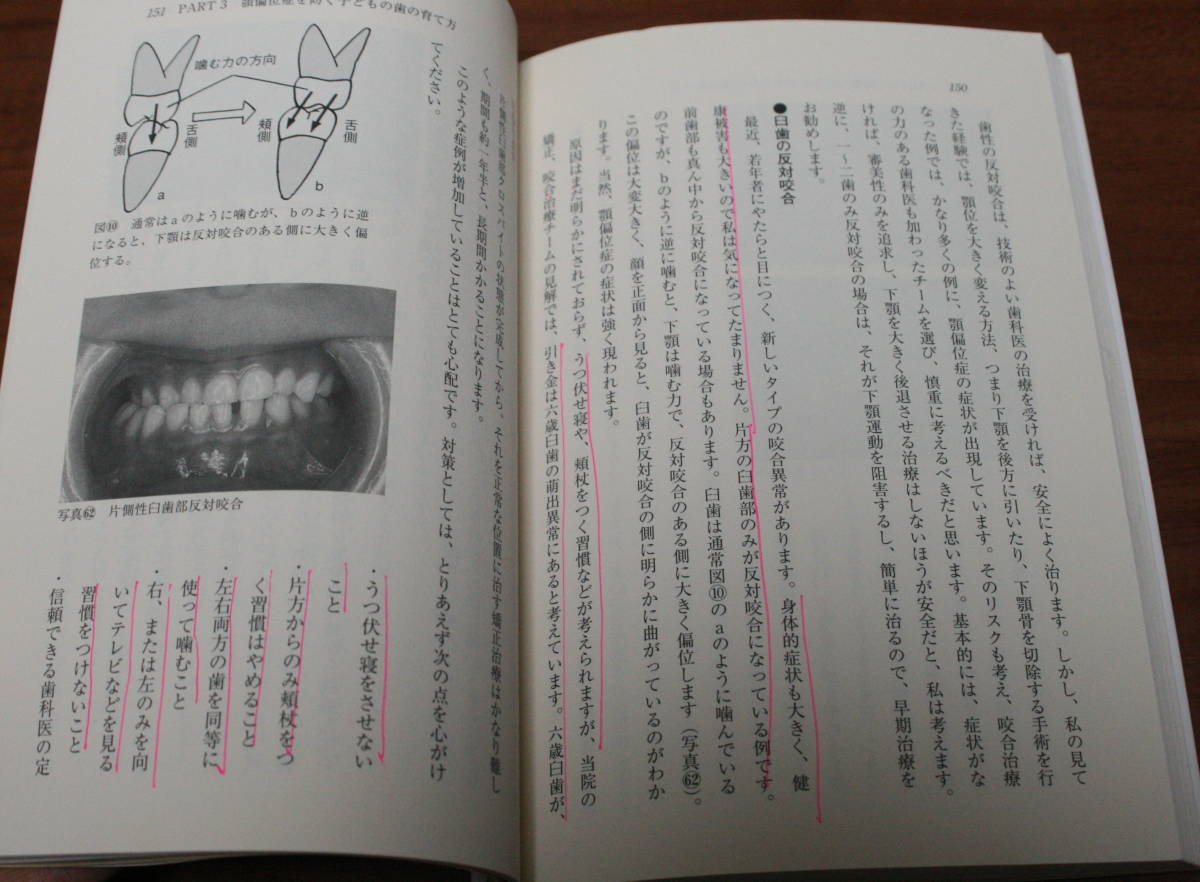 150
歯性の反対咬合は、技術のよい歯科医の治療を受ければ、安全によく治ります。しかし、私の見て
きた経験では、顎位を大きく変える方法、つまり下顎を後方に引いたり、下顎骨を切除する手術を行
なった例では、かなり多くの例に、顎偏位症の症状が出現しています。そのリスクも考え、咬合治療
の力のある歯科医も加わったチームを選び、慎重に考えるべきだと思います。基本的には、症状がな
ければ、審美性のみを追求し、下顎を大きく後退させる治療はしないほうが安全だと、私は考えます。
逆に、一〜二歯のみ反対咬合の場合は、それが下顎運動を阻害するし、簡単に治るので、早期治療を
お勧めします。
●臼歯の反対咬合
最近、若年者にやたらと目につく、新しいタイプの咬合異常があります。身体的症状も大きく、健
康被害も大きいので私は気になってたまりません。片方の臼歯部のみが反対咬合になっている例です。
前歯部も真ん中から反対咬合になっている場合もあります。臼歯は通常図⑩のaのように噛んでいる
のですが、bのように逆に噛むと、下顎は噛む力で、反対咬合のある側に大きく偏位します（写真62）。
この偏位は大変大きく、顔を正面から見ると、臼歯が反対咬合の側に明らかに曲がっているのがわか
ります。当然、顎偏位症の症状は強く現われます。
原因はまだ明らかにされておらず、うつ伏せ寝や、頬杖をつく習慣などが考えられますが、当院の
矯正、咬合治療チームの見解では、引き金は六歳臼歯の萌出異常にあると考えています。六歳臼歯が、
151 PART3 顎偏位症を防ぐ子どもの歯の育て方
片側性臼歯部クロスバイトの状態が完成してから、それを正常な位置に治す矯正治療はかなり難し
く、期間も約一年半と、長期間かかることになります。
このような症例が増加していることはとても心配です。対策としては、とりあえず次の点を心がけ
てください。
噛む力の方向
頬側
舌側
a
頬側
舌側
b
図⑩ 通常はaのように噛むが、bのように逆
になると、下顎は反対咬合のある側に大きく偏
位する。
写真62 片側性臼歯部反対咬合
・うつ伏せ寝をさせない
こと
・片方からのみ頬杖をつ
く習慣はやめること
・左右両方の歯を同等に
使って噛むこと
・右、または左のみを向
いてテレビなどを見る
習慣をつけないこと
・信頼できる歯科医の定